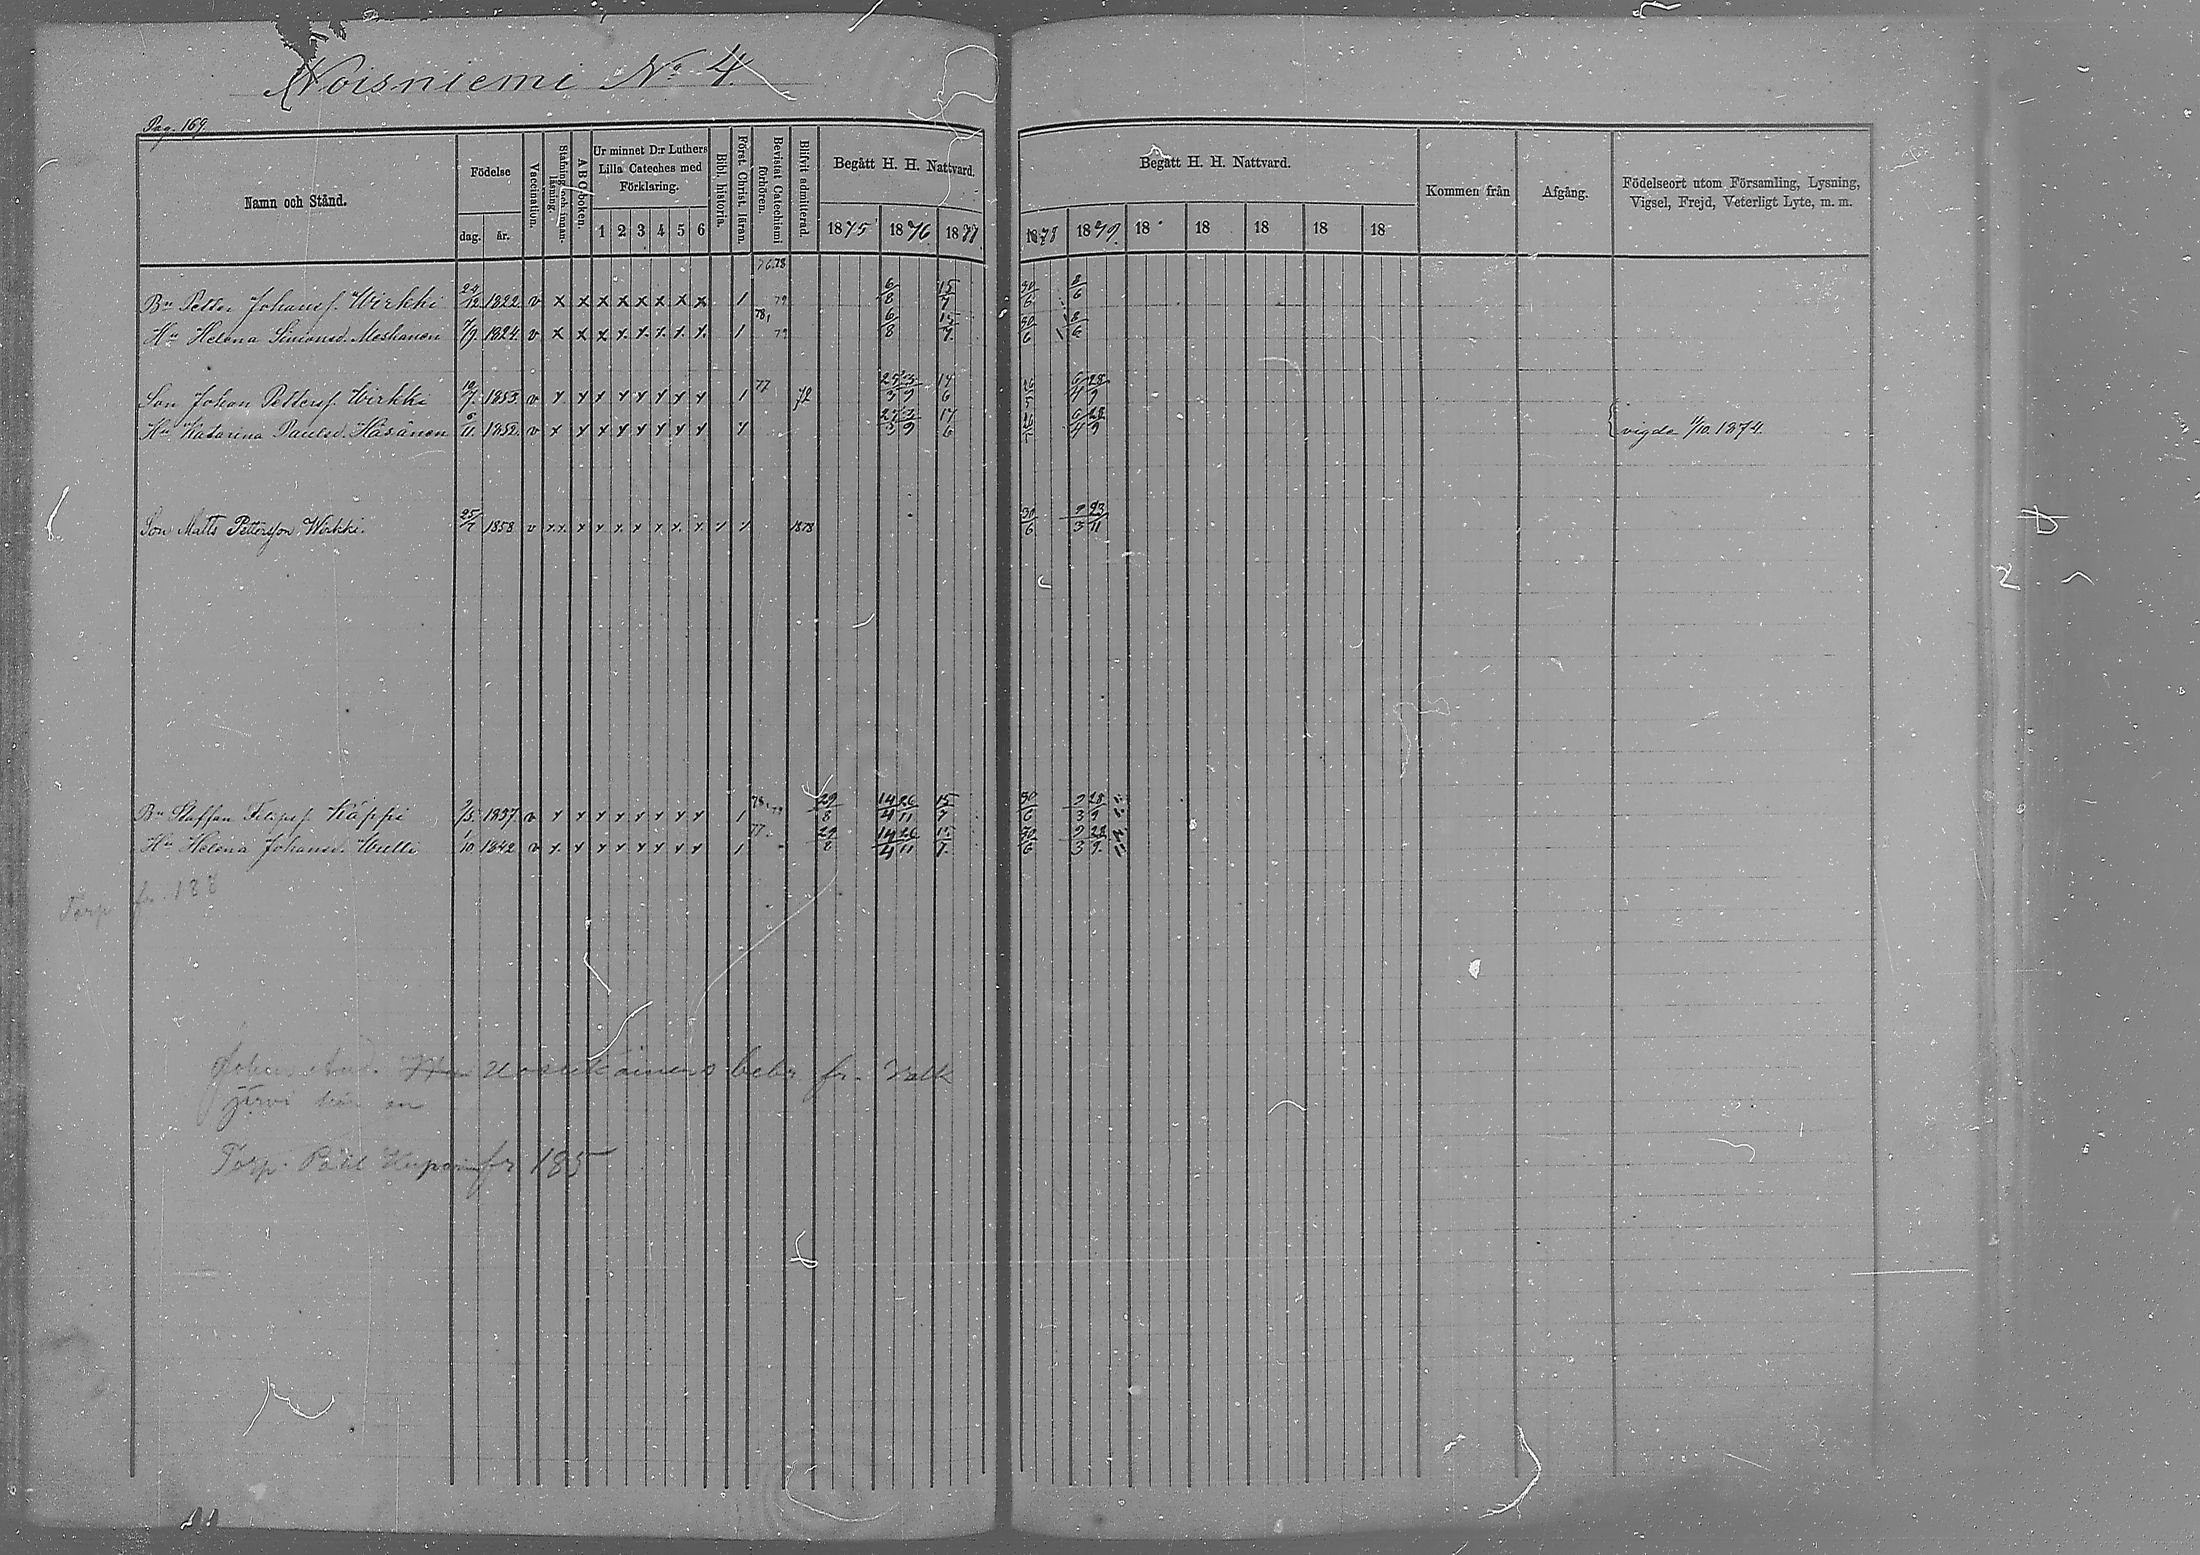 Noisniemi No 4.
Pag. 169.
Namn och Stånd.
Födelse
dag. år.
Vaccination.
Stafning och innanläsning.
A B C boken.
Ur minnet D:r Luthers Lilla Cateches med Förklaring.
1 2 3 4 5 6
Bibl. historia.
Först. Christ. läran.
Bevistat Catechismi förhören.
Blifvit admitterad.
Begått H. H. Nattvard.
1875 1876 1877
Begått H. H. Nattvard.
1878 1879. 18 18 18 18 18
Kommen från
Afgång.
Födelseort utom Församling, Lysning, Vigsel, Frejd, Veterligt Lyte, m. m.
76.78
Bn Petter Johansf. Wirkki 24/12 1822 v x x x x x x x x 1 79 6/8 15/7 30/6 8/6
Hu Helena Simonsd. Meskanen 7/9. 1824 v x x x x x x x x 1 78, 79 6/8 15/7. 30/6 8/6
Son Johan Pettersf. Wirkki 10/7 1853 v x x x x x x x x 1 77 72 17/6 6/4 28/9
Hu Katarina Paulsd. Häsänen 6/11. 1852 v x x x x x x x x 17/6 6/4 28/9 vigde 1/10. 1874.
Son Matts Pettersson Wirkki. 25/7 1858 v x x x x x x x x x x 1878 30/6 9/3 23/11
Bn Staffan Filipsf. Käppi 2/5. 1837 v x x x x x x x x 1 78, 79 29/8 14/4 26/11 15/7 30/6 9/3 28/9
Hu Helena Johansd. Wulli 1/10 1842 v x x x x x x x x 1 77 29/8 14/4 26/11 15/7. 30/6 9/3 28/9.
Torp fr. 188
Johan And. Uosukainens fr. Valk
järvi
Torp. Påhl fr 185